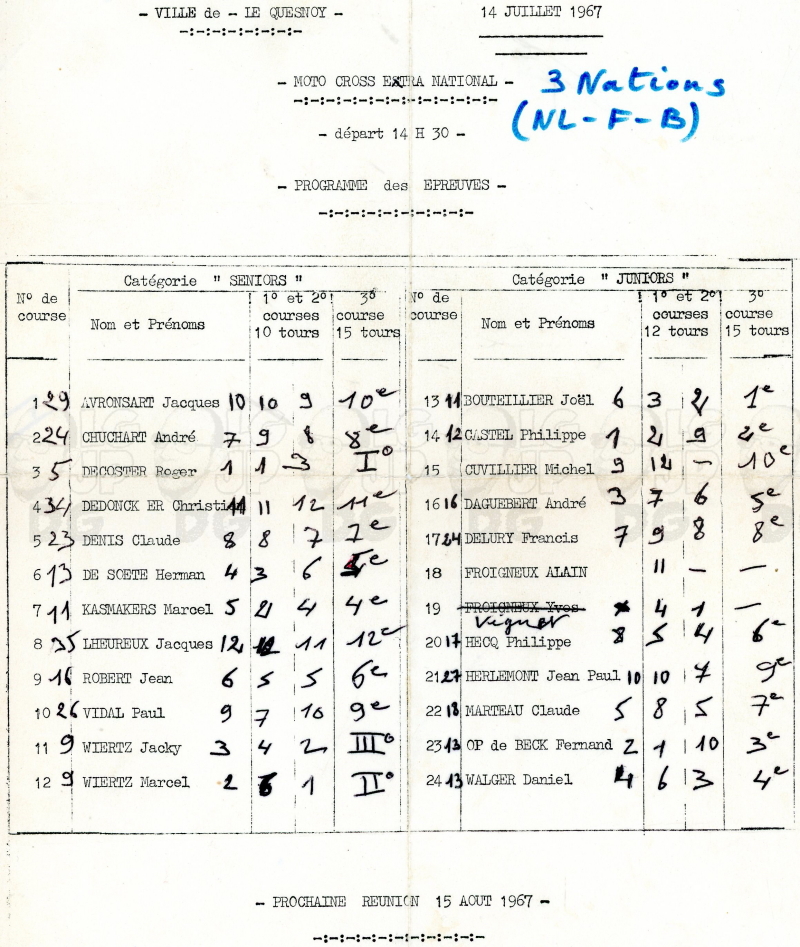 - VILLE de - LE QUESNOY -
14 JUILLET 1967
- MOTO CROSS EXTRA NATIONAL -
3 Nations
(NL-F-B)
- départ 14 H 30 -
- PROGRAMME des EPREUVES -
Catégorie " SENIORS "
N° de course
Nom et Prénoms
1° et 2° courses 10 tours
3° course 15 tours
1 29 AVRONSART Jacques 10 10 9 10e
2 24 CHUCHART André 7 9 8 8e
3 5 DECOSTER Roger 1 1 3 I°
4 34 DEDONCK ER Christian 11 11 12 11e
5 23 DENIS Claude 8 8 7 7e
6 13 DE SOETE Herman 4 3 6 5e
7 11 KASMAKERS Marcel 5 2 4 4e
8 35 LHEUREUX Jacques 12 12 11 12e
9 16 ROBERT Jean 6 5 5 6e
10 26 VIDAL Paul 9 7 10 9e
11 9 WIERTZ Jacky 3 4 2 III°
12 9 WIERTZ Marcel 2 6 1 II°
Catégorie " JUNIORS "
N° de course
Nom et Prénoms
1° et 2° courses 12 tours
3° course 15 tours
13 11 BOUTEILLIER Joël 6 3 2 1e
14 12 CASTEL Philippe 1 2 9 2e
15 CUVILLIER Michel 9 12 - 10e
16 16 DAGUEBERT André 3 7 6 5e
17 24 DELURY Francis 7 9 8 8e
18 FROIGNEUX ALAIN 11 - -
19 FROIGNEUX Yves 4 1 -
Vignet
20 17 HECQ Philippe 8 5 4 6e
21 27 HERLEMONT Jean Paul 10 10 7 9e
22 18 MARTEAU Claude 5 8 5 7e
23 13 OP de BECK Fernand 2 1 10 3e
24 13 WALGER Daniel 4 6 3 4e
- PROCHAINE REUNION 15 AOUT 1967 -